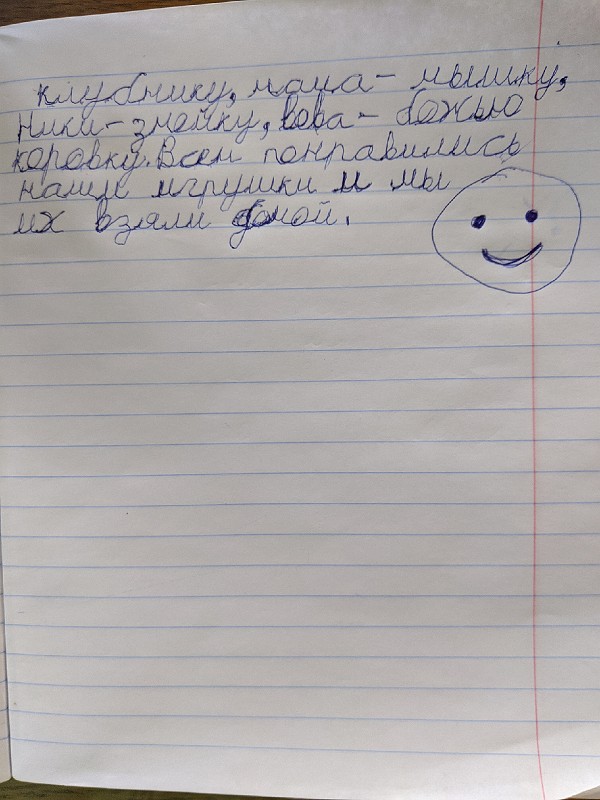 клубнику, мама - мышку,
Ники - змейку, Вова - божью
коровку. Всем понравились
наши игрушки и мы
их взяли домой.